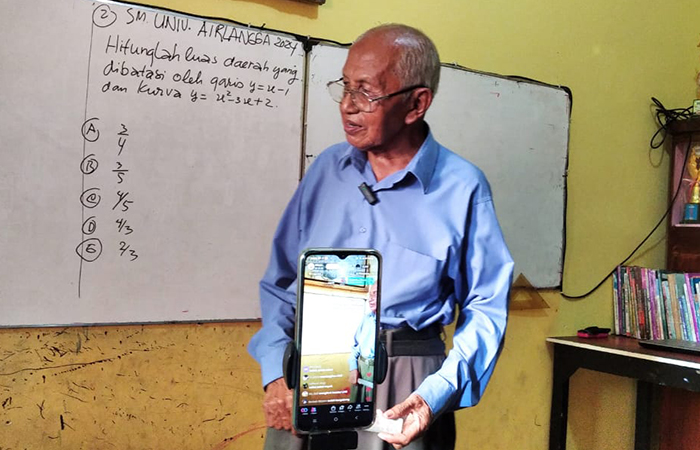 ② SM UNIV. AIRLANGGA 2024
Hitunglah luas daerah yang
dibatasi oleh garis y = x-1
dan Kurva y = x²-3x+2.
Ⓐ 3/4
Ⓑ 3/5
Ⓒ 4/5
Ⓓ 4/3
Ⓔ 2/3